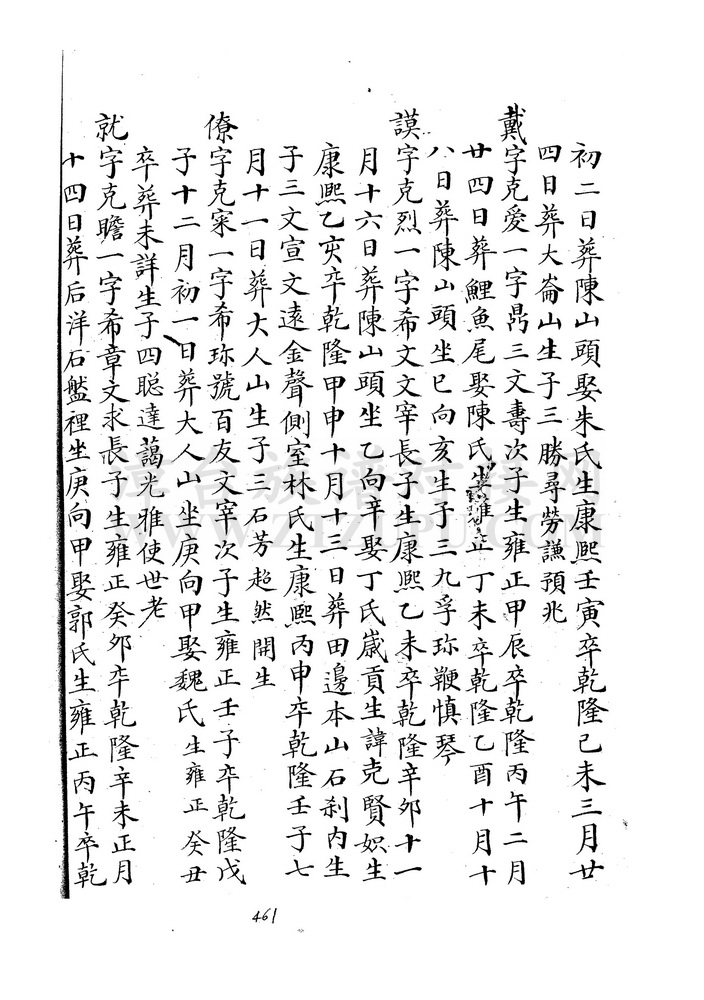 初二日葬陳山頭娶朱氏生康熙壬寅卒乾隆己未三月廿
四日葬大崙山生子三勝尋勞謙預兆
戴字克愛一字鼎三文壽次子生雍正甲辰卒乾隆丙午二月
廿四日葬鯉魚尾娶陳氏生雍正丁未卒乾隆乙酉十月十
八日葬陳山頭坐巳向亥生子三九孚珎鞭慎琴
謨字克烈一字希文文宰長子生康熙乙未卒乾隆辛卯十一
月十六日葬陳山頭坐乙向辛娶丁氏歲貢生諱克賢姒生
康熙乙亥卒乾隆甲申十月十三日葬田邊本山石刹内生
子三文宣文遠金聲側室林氏生康熙丙申卒乾隆壬子七
月十一日葬大人山生子三石芳超然開生
僚字克寀一字希珎號百友文宰次子生雍正壬子卒乾隆戊
子十二月初一日葬大人山坐庚向甲娶魏氏生雍正癸丑
卒葬未詳生子四聪達藹光雅使世老
就字克瞻一字希章文求長子生雍正癸卯卒乾隆辛未正月
十四日葬后洋石盤裡坐庚向甲娶郭氏生雍正丙午卒乾
461